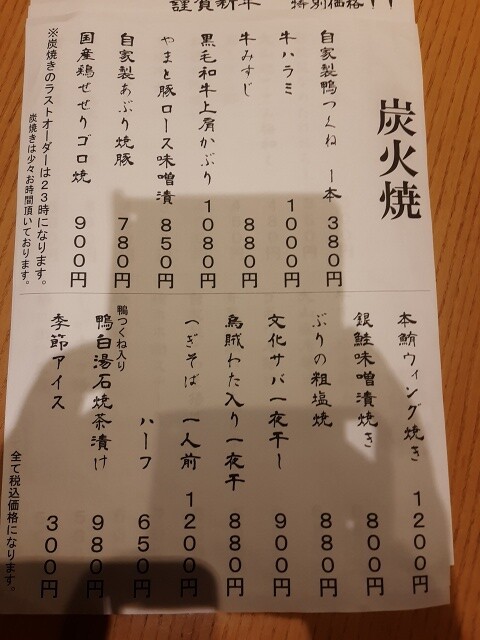 謹賀新年 特別価格！！
炭火焼
自家製鴨つくね 一本 380円
牛ハラミ 1000円
牛みすじ 880円
黒毛和牛上肩かぶり 1080円
やまと豚ロース味噌漬 850円
自家製あぶり焼豚 780円
国産鶏せせりゴロ焼 900円
※炭焼きのラストオーダーは23時になります。
炭焼きは少々お時間頂いております。
本鮪ウィング焼き 1200円
銀鮭味噌漬焼き 800円
ぶりの粗塩焼 880円
文化サバ一夜干し 900円
烏賊わた入り一夜干 880円
へぎそば 一人前 1200円
ハーフ 650円
鴨つくね入り
鴨白湯石焼茶漬け 980円
季節アイス 300円
全て税込価格になります。